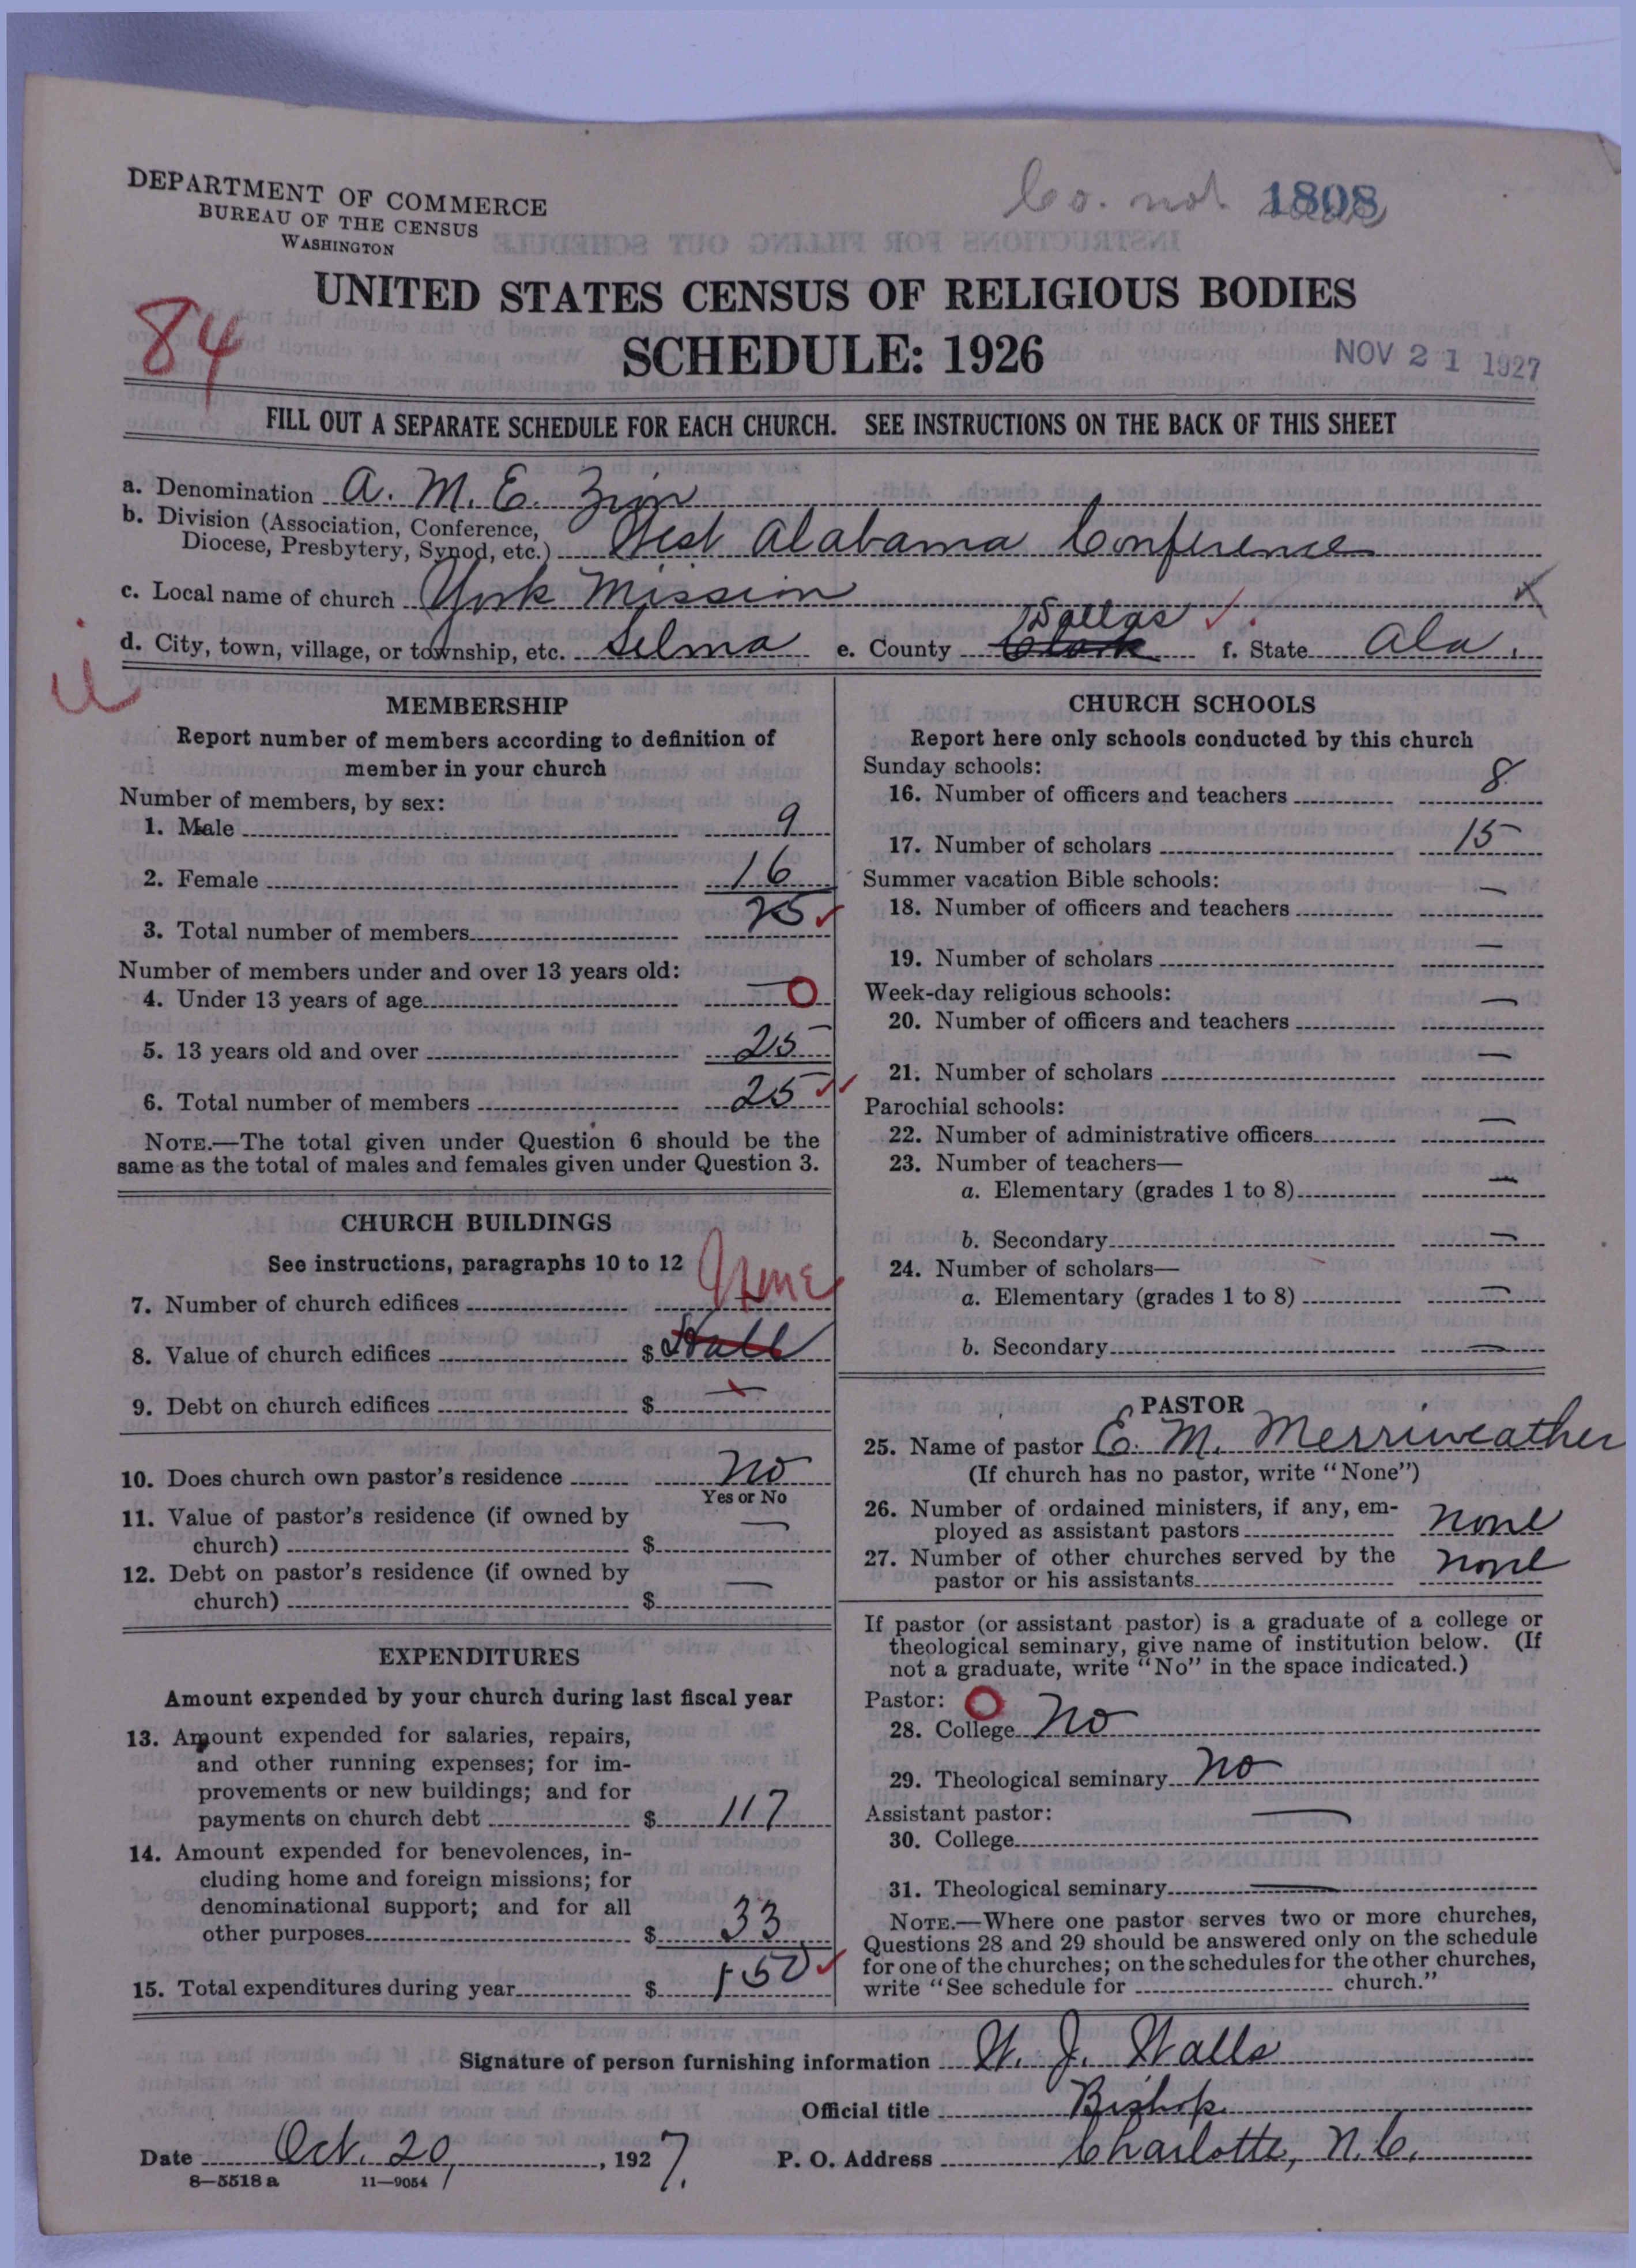 DEPARTMENT OF COMMERCE
BUREAU OF THE CENSUS
WASHINGTON
Co. not 1808
UNITED STATES CENSUS OF RELIGIOUS BODIES
84
SCHEDULE: 1926
NOV 21 1927
FILL OUT A SEPARATE SCHEDULE FOR EACH CHURCH. SEE INSTRUCTIONS ON THE BACK OF THIS SHEET
a. Denomination A. M. E. Zion
b. Division (Association, Conference,
Diocese, Presbytery, Synod, etc.) West Alabama Conference
c. Local name of church York Mission
d. City, town, village, or township, etc. Selma e. County Clark Dallas f. State Ala.
MEMBERSHIP
Report number of members according to definition of
member in your church
Number of members, by sex:
1. Male 9
2. Female 16
3. Total number of members 25
Number of members under and over 13 years old:
4. Under 13 years of age — O
5. 13 years old and over 25
6. Total number of members 25
NOTE.—The total given under Question 6 should be the
same as the total of males and females given under Question 3.
CHURCH BUILDINGS
See instructions, paragraphs 10 to 12
7. Number of church edifices — None
8. Value of church edifices $ Hall
9. Debt on church edifices $ —
10. Does church own pastor's residence No
Yes or No
11. Value of pastor's residence (if owned by
church) $ —
12. Debt on pastor's residence (if owned by
church) $ —
EXPENDITURES
Amount expended by your church during last fiscal year
13. Amount expended for salaries, repairs,
and other running expenses; for im-
provements or new buildings; and for
payments on church debt $ 117
14. Amount expended for benevolences, in-
cluding home and foreign missions; for
denominational support; and for all
other purposes $ 33
15. Total expenditures during year $ 150
CHURCH SCHOOLS
Report here only schools conducted by this church
Sunday schools:
16. Number of officers and teachers 8
17. Number of scholars 15
Summer vacation Bible schools:
18. Number of officers and teachers —
19. Number of scholars —
Week-day religious schools:
20. Number of officers and teachers —
21. Number of scholars —
Parochial schools:
22. Number of administrative officers —
23. Number of teachers—
a. Elementary (grades 1 to 8) —
b. Secondary —
24. Number of scholars—
a. Elementary (grades 1 to 8) —
b. Secondary —
PASTOR
25. Name of pastor E. M. Merriweather
(If church has no pastor, write "None")
26. Number of ordained ministers, if any, em-
ployed as assistant pastors none
27. Number of other churches served by the
pastor or his assistants none
If pastor (or assistant pastor) is a graduate of a college or
theological seminary, give name of institution below. (If
not a graduate, write "No" in the space indicated.)
Pastor: O
28. College No
29. Theological seminary No
Assistant pastor:
30. College —
31. Theological seminary —
NOTE.—Where one pastor serves two or more churches,
Questions 28 and 29 should be answered only on the schedule
for one of the churches; on the schedules for the other churches,
write "See schedule for church."
Signature of person furnishing information W. J. Walls
Official title Bishop
Date Oct. 20, 1927. P. O. Address Charlotte, N.C.
8—5518 a 11—9054